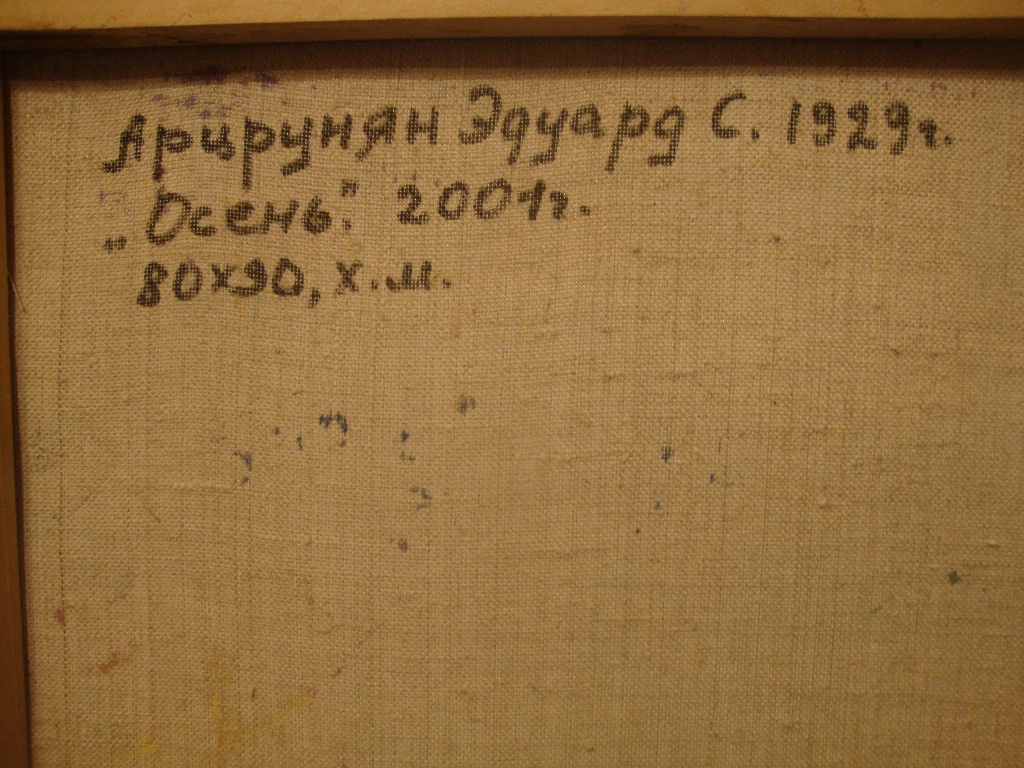 Арцрунян Эдуард С. 1929г.
„Осень". 2001г.
80х90, х.м.